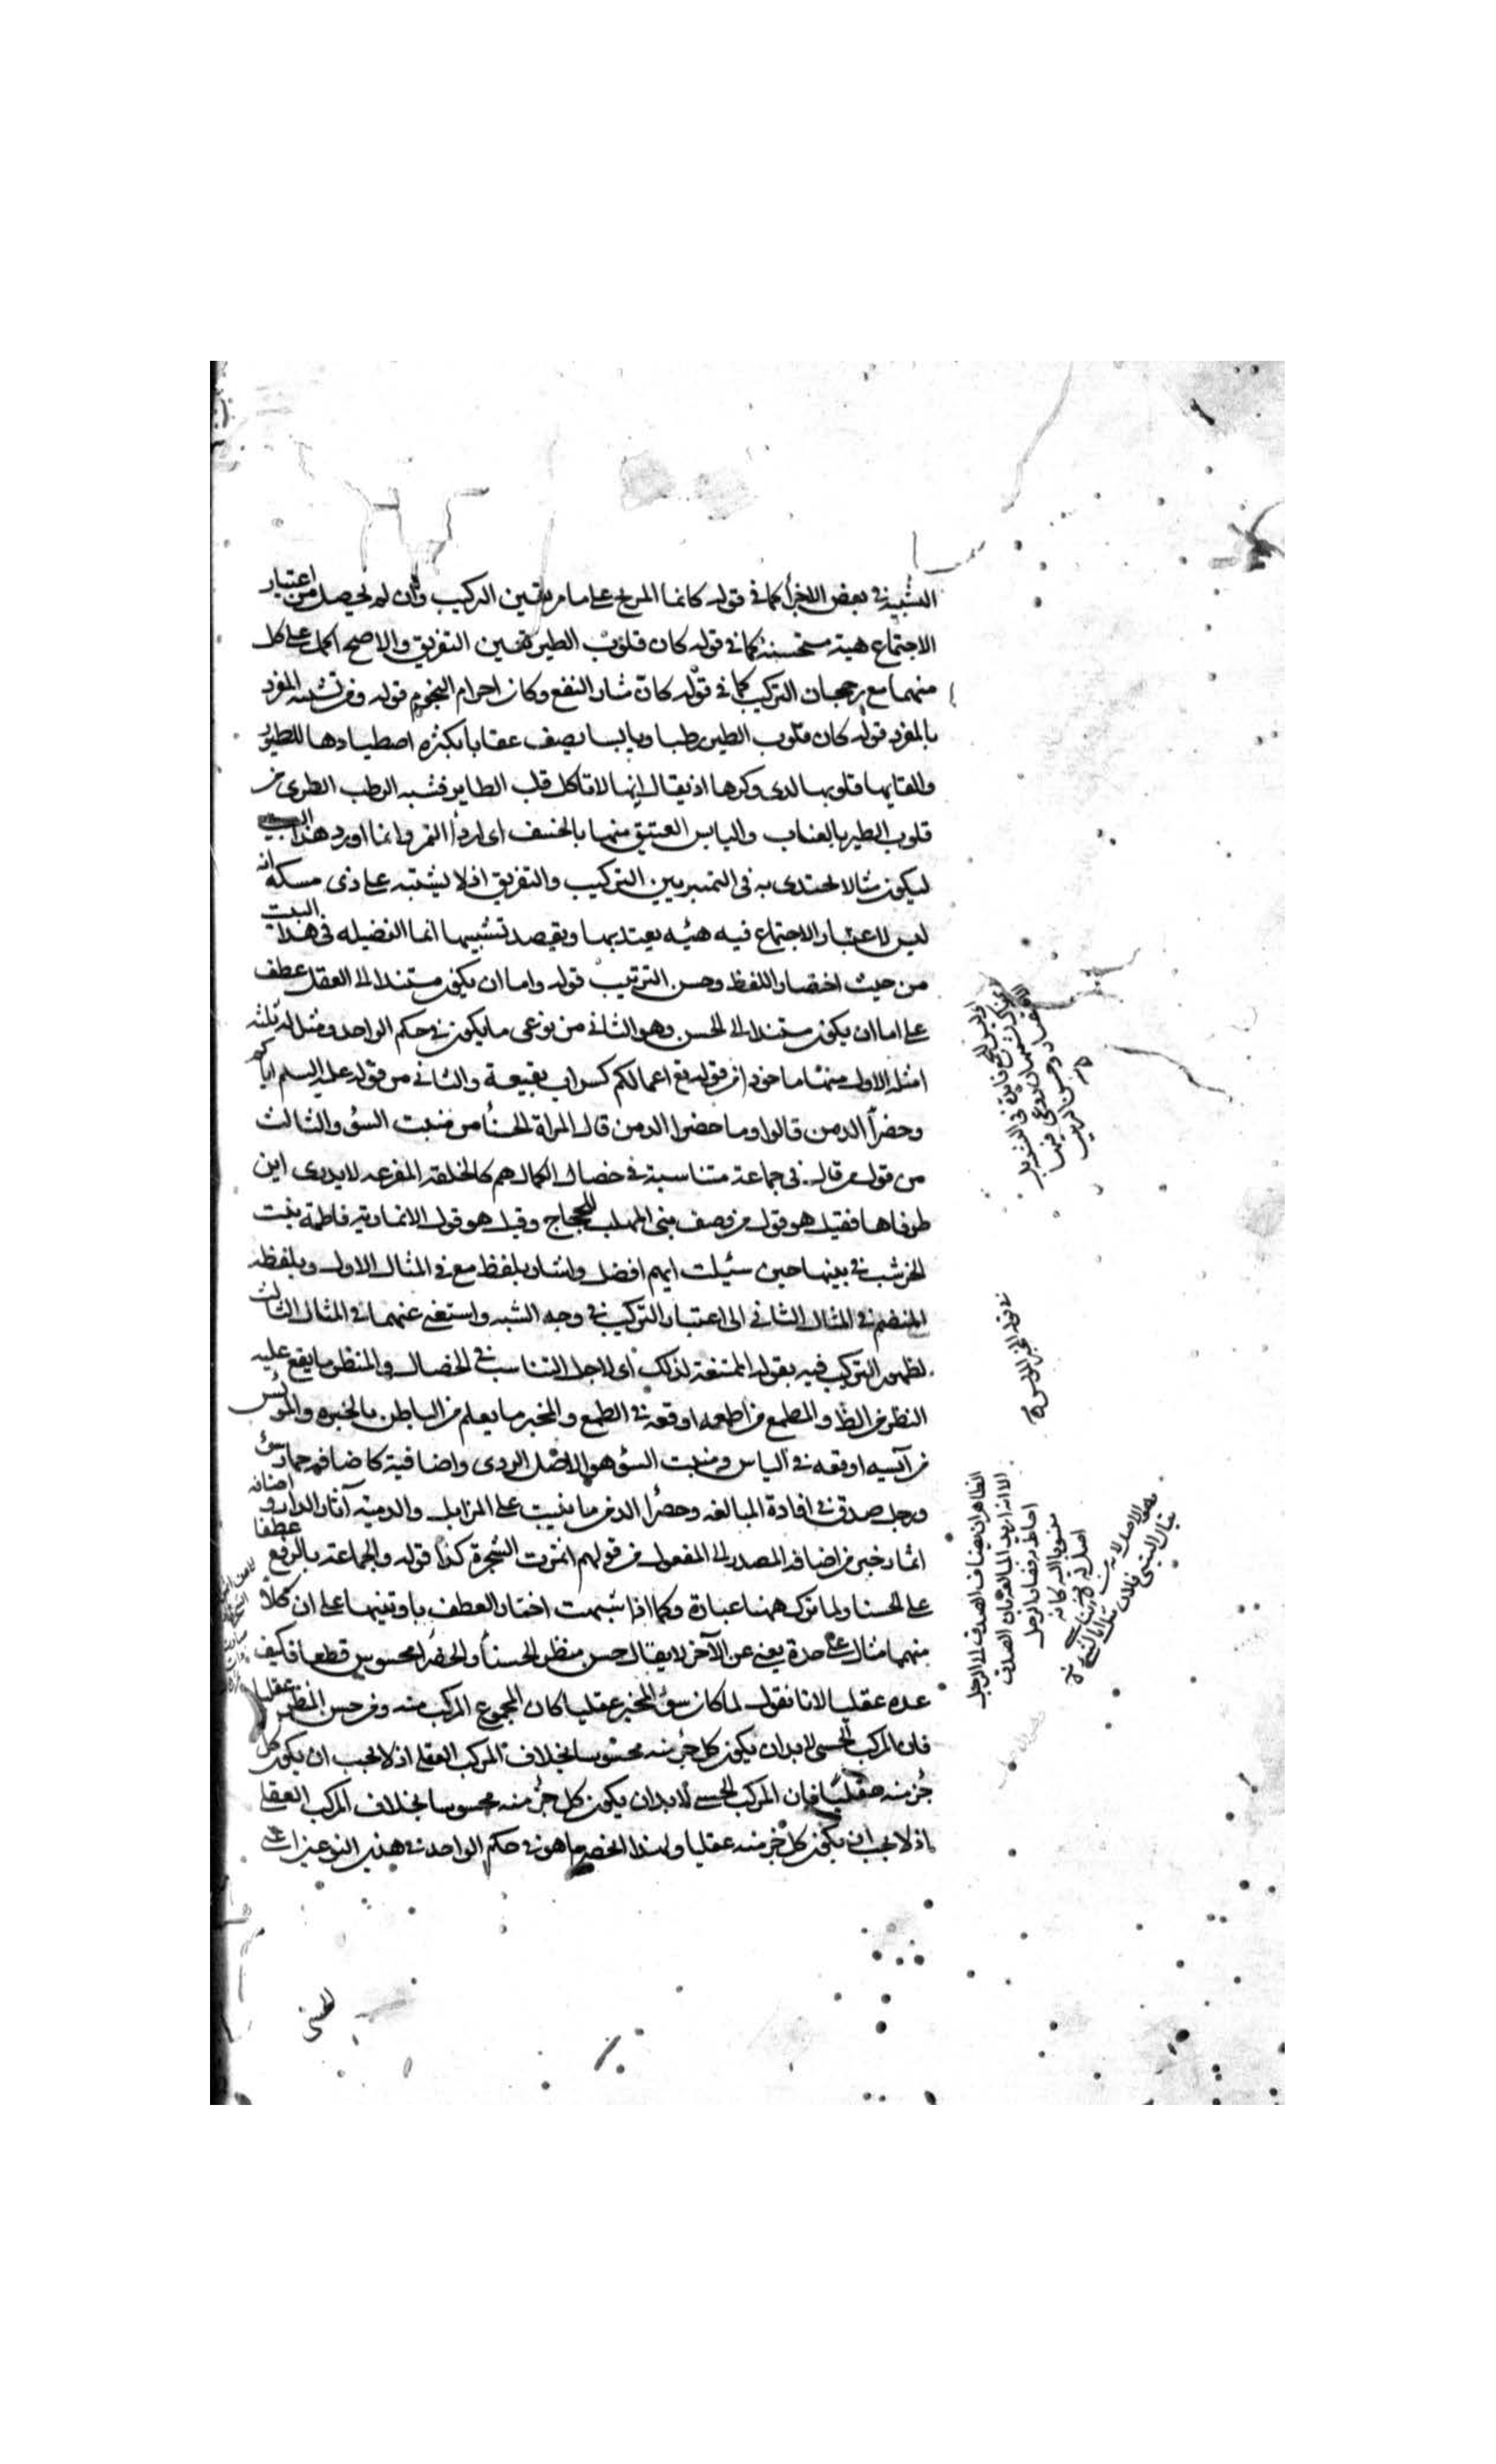 التشبيه في بعض الاجزأ كما في قوله كانما المريخ على ما مر تعين التركيب وان لم يحصل من اعتبار
الاجتماع هيئة مستحسنة كما في قوله كان قلوب الطير تعين التفريق والاصح اكمل على كل
منهما مع رجحان التركيب كما في قوله كان مثار النقع وكان اجرام النجوم قوله وفي تشبيه المفرد
بالمفرد قوله كان قلوب الطير رطبا ويابسا يصف عقابا بكثرة اصطيادها للطيور
والقايها قلوبها لدى وكرها اذ يقال انها لا تاكل قلب الطاير فشبه الرطب الطرى من
قلوب الطير بالعناب واليابس العتيق منها بالخشف اى اردأ التمر وانما اورد هذا البيت
ليكون مثالا يحتدى به في التمييز بين التركيب والتفريق اذ لا يشتبه على ذى مسكة انه
ليس لاعتبار الاجتماع فيه هيئه يعتد بها ويقصد تشبيهها انما الفضيله في هذا البيت
من حيث اختصار اللفظ وحسن الترتيب قوله واما ان يكون مستندا الى العقل عطف
على اما ان يكون مستندا الى الحس وهو الثاني من نوعى ما يكون في حكم الواحد ومثل له ثلثه
امثلة الاول منها ماخوذ من قوله تع اعمالكم كسراب بقيعة والثاني من قوله عليه السلم اياكم
وخضرأ الدمن قالوا وما خضرا الدمن قال المراة الحسنأ من منبت السؤ والثالث
من قول من قال في جماعة متناسبة في خصال الكمال هم كالحلقة المفرغه لا يدرى اين
طرفاها فقيل هو قول من وصف بنى المهلب للحجاج وقيل هو قول الانمارية فاطمة بنت
الخرشب في بنيها حين سئيلت ايهم افضل واشار بلفظ مع في المثال الاول وبلفظه
المنضم في المثال الثاني الى اعتبار التركيب في وجه الشبه واستغنى عنهما في المثال الثالث
لظهور التركيب فيه بقوله الممتنعة لذلك اى لاجل التناسب في الخصال والمنظر ما يقع عليه
النظر من الظا والمطمع من اطمعه اوقعه في الطمع والمخبر ما يعلم من الباطن بالخبره والمويس
من آيسه اوقعه في الياس ومنبت السؤ هو الاصل الردى واضافية كاضافة حمار سؤ
ورجل صدق في افادة المبالغه وخضرأ الدمن ما ينبت على المزابل والدمنة آثار الدار واضافه
اثمار خبر من اضافة المصدر الى المفعول من قولهم اثمرت الشجرة كذا قوله والجماعة بالرفع عطفا
على الحسنا ولما ترك ههنا عبارة وكما اذا شبهت اختار العطف باو تنبيها على ان كلا
منهما مثال على حدة يغنى عن الآخر لا يقال حسن منظر الحسنأ والخضرا محسوس قطعا فكيف
عده عقليا لانا نقول لما كان سؤ المخبر عقليا كان المجموع المركب منه ومن حسن المنظر عقليا
فان المركب الحسي لا بد ان يكون كل جزء منه محسوسا بخلاف المركب العقلى اذ لا يجب ان يكون كل
جزء منه عقليا فان المركب الحسى لا بد ان يكون كل جزء منه محسوسا بخلاف المركب العقلى
اذ لا يجب ان يكون كل جزء منه عقليا ولهذا انحصر ما هو في حكم الواحد في هذين النوعين
الظاهر ان يضاف الصدق الى الرجل
الا انه اريد المبالغة بان الصدق